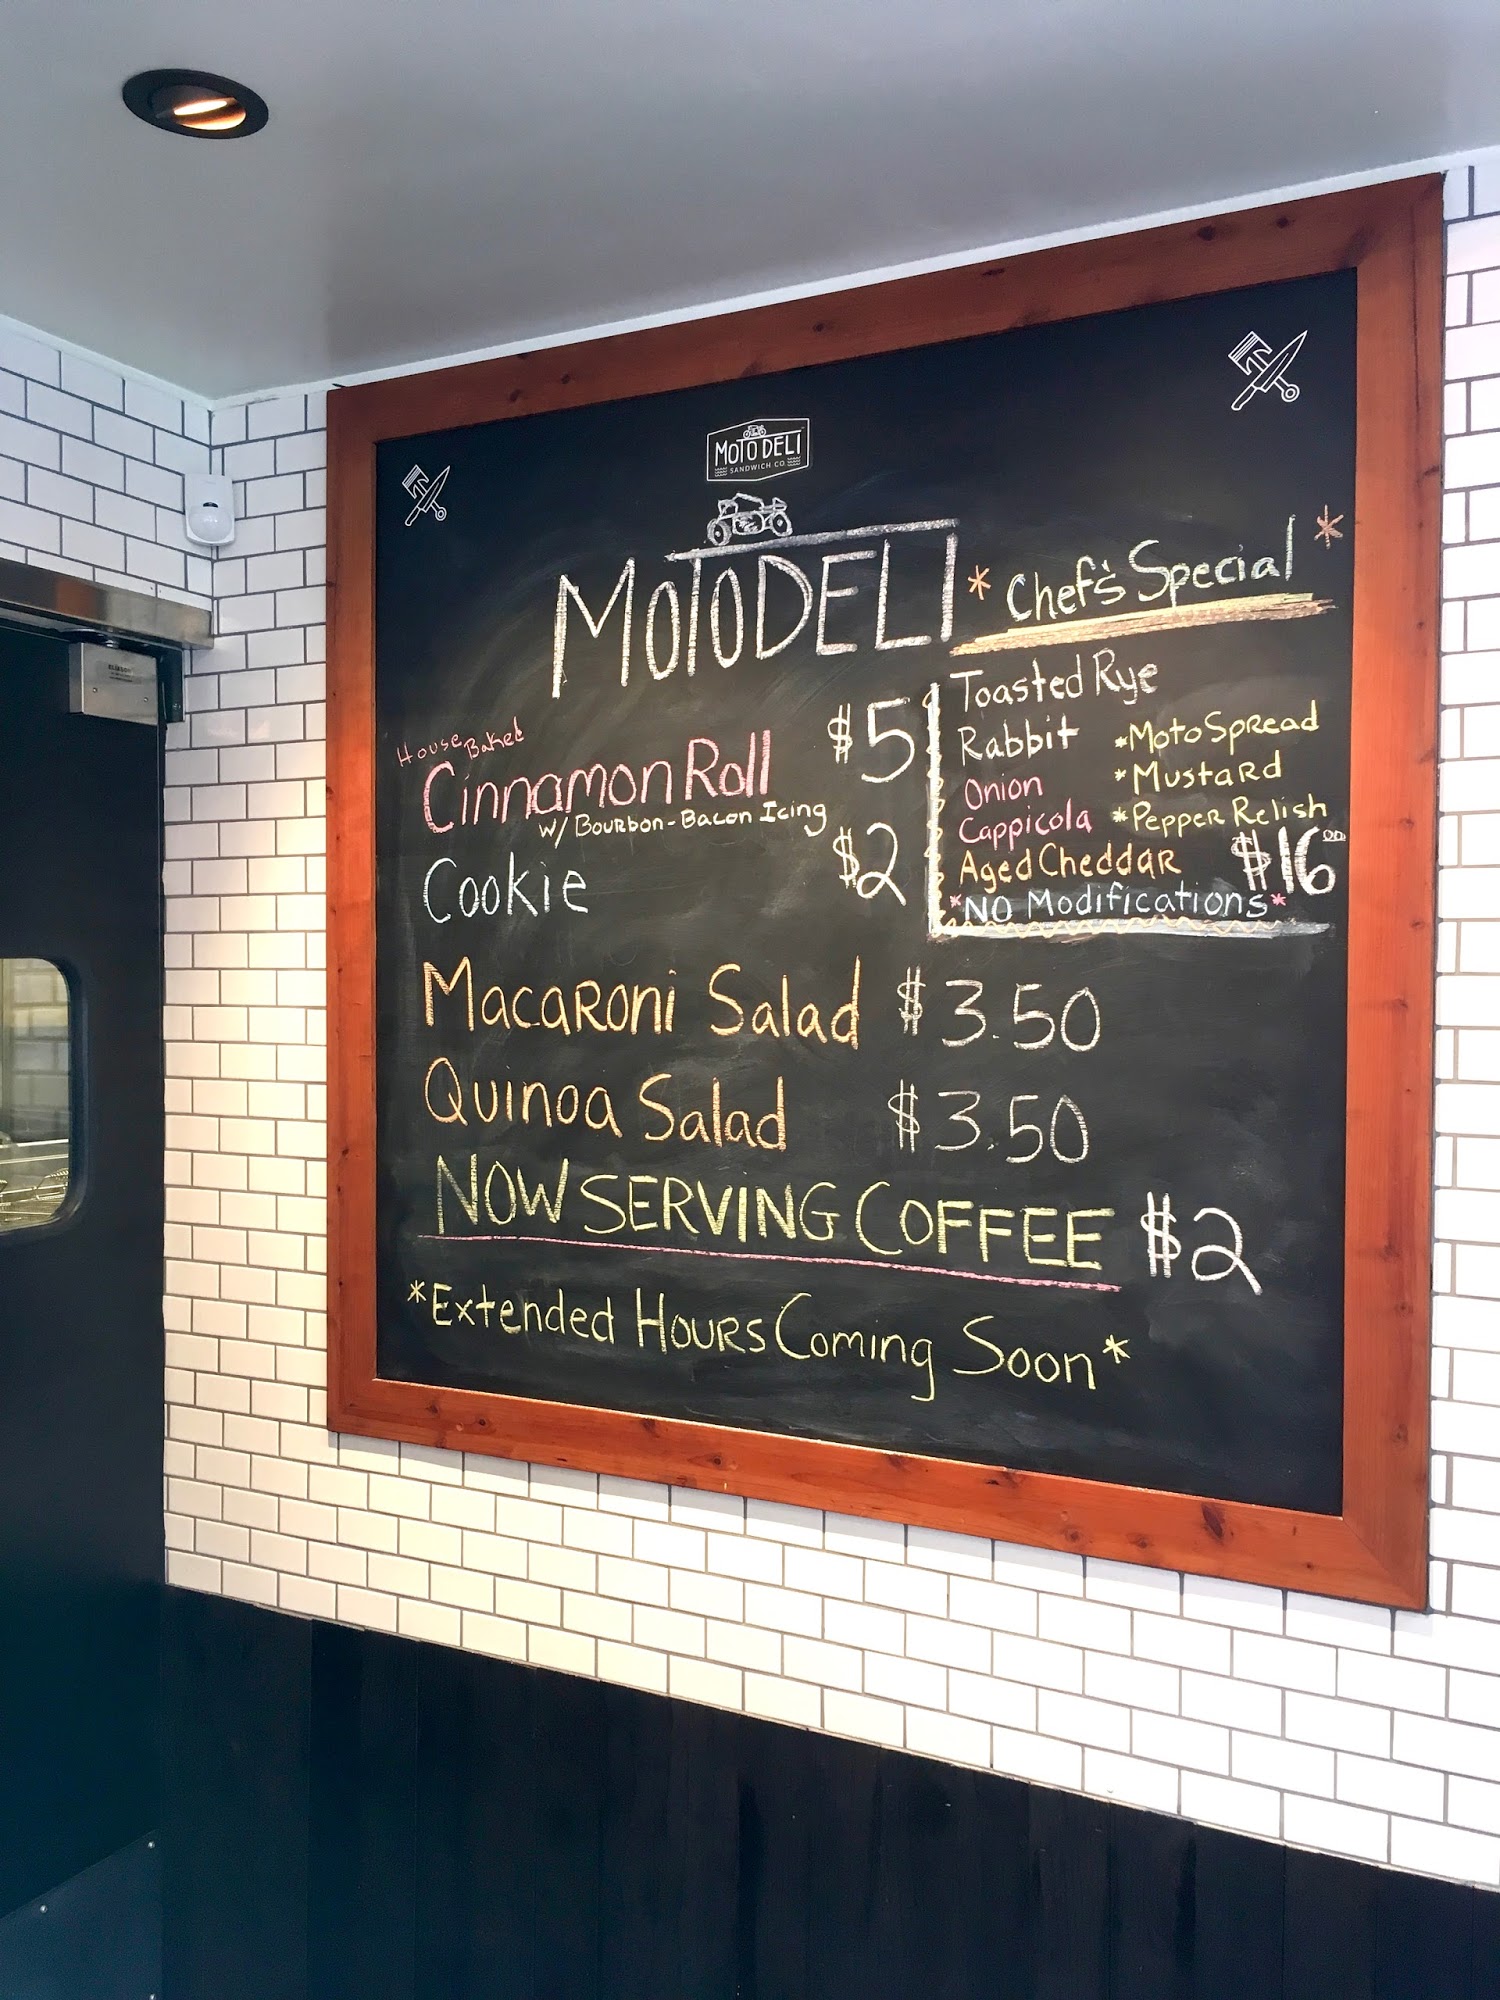 MOTO DELI
SANDWICH CO.
MOTODELI
House Baked
Cinnamon Roll $5
w/ Bourbon-Bacon Icing
Cookie $2
* Chef's Special *
Toasted Rye
Rabbit
Onion
Cappicola
Aged Cheddar
*Moto Spread
*Mustard
*Pepper Relish
$16.00
*NO Modifications*
Macaroni Salad $3.50
Quinoa Salad $3.50
NOW SERVING COFFEE $2
*Extended Hours Coming Soon*